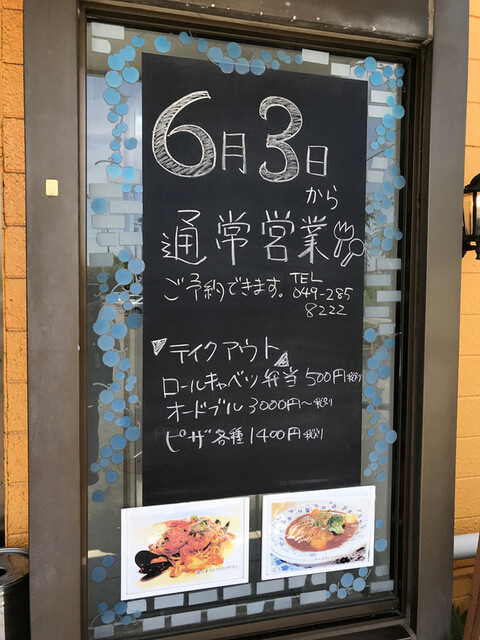 6月3日
から
通常営業
ご予約できます。TEL
049-285
8222
テイクアウト
ロールキャベツ弁当500円(税込)
オードブル3000円～(税込)
ピザ各種1400円(税込)